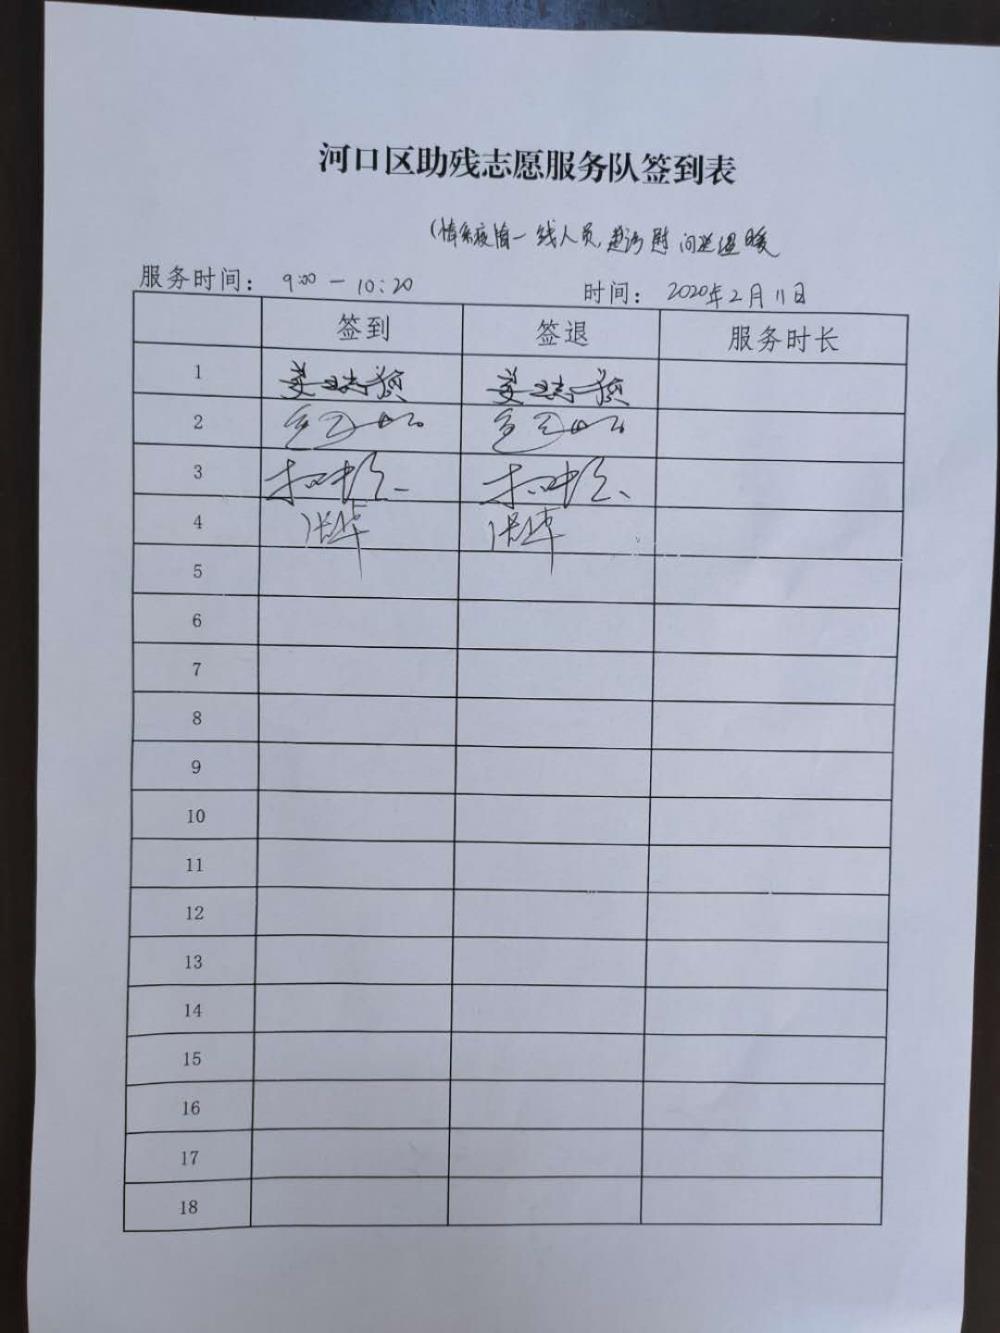 河口区助残志愿服务队签到表
(情系疫情一线人员, 走访慰问送温暖
服务时间: 9:00 — 10:20 时间: 2020年2月11日
签到 签退 服务时长
1
2
3
4 张华 张华
5
6
7
8
9
10
11
12
13
14
15
16
17
18